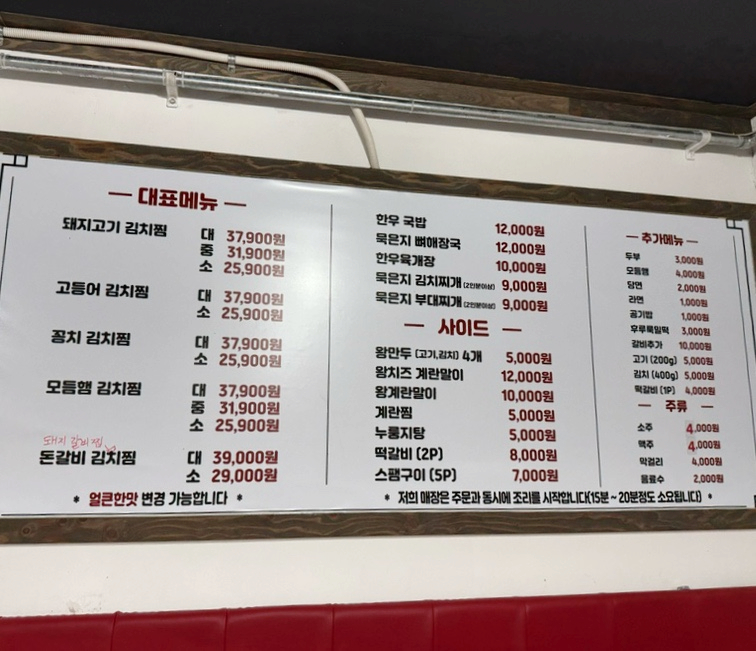 대표메뉴
돼지고기 김치찜 대 37,900원
중 31,900원
소 25,900원
고등어 김치찜 대 37,900원
소 25,900원
꽁치 김치찜 대 37,900원
소 25,900원
모듬햄 김치찜 대 37,900원
중 31,900원
소 25,900원
돼지 갈비찜
돈갈비 김치찜 대 39,000원
소 29,000원
* 얼큰한맛 변경 가능합니다 *
한우 국밥 12,000원
묵은지 뼈해장국 12,000원
한우육개장 10,000원
묵은지 김치찌개 (2인분이상) 9,000원
묵은지 부대찌개 (2인분이상) 9,000원
사이드
왕만두 (고기,김치) 4개 5,000원
왕치즈 계란말이 12,000원
왕계란말이 10,000원
계란찜 5,000원
누룽지탕 5,000원
떡갈비 (2P) 8,000원
스팸구이 (5P) 7,000원
* 저희 매장은 주문과 동시에 조리를 시작합니다(15분 ~ 20분정도 소요됩니다) *
추가메뉴
두부 3,000원
모듬햄 4,000원
당면 2,000원
라면 1,000원
공기밥 1,000원
후루룩밀떡 3,000원
갈비추가 10,000원
고기 (200g) 5,000원
김치 (400g) 5,000원
떡갈비 (1P) 4,000원
주류
소주 4,000원
맥주 4,000원
막걸리 4,000원
음료수 2,000원